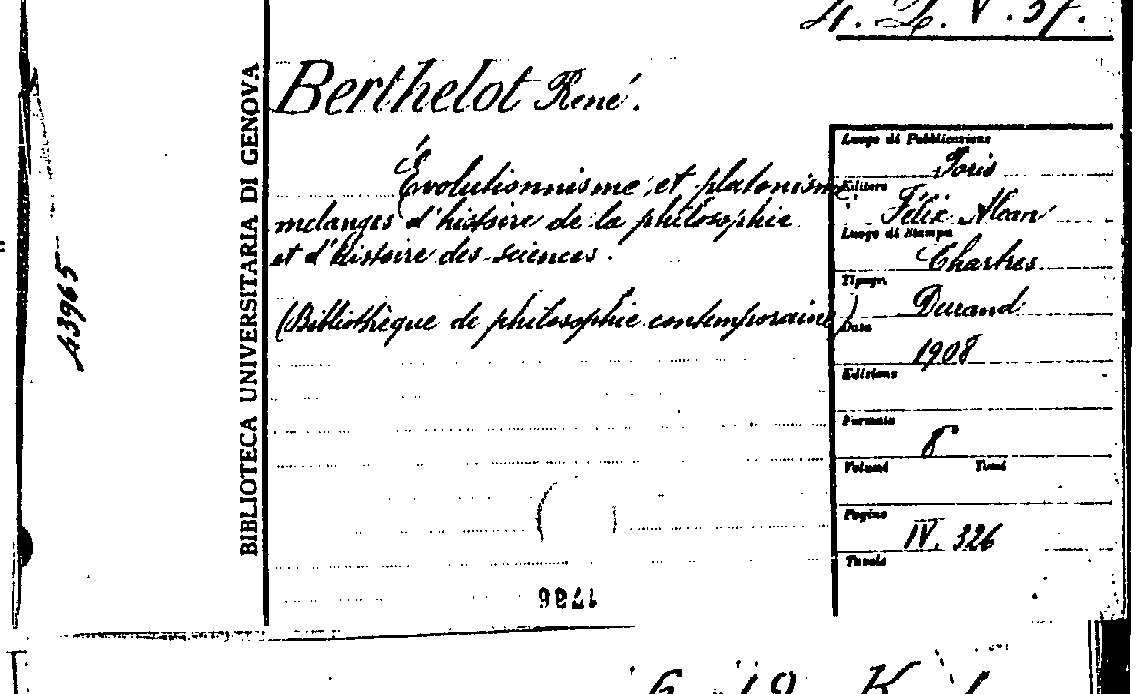 4. L. V. 37.
BIBLIOTECA UNIVERSITARIA DI GENOVA
43965
Berthelot René.
Évolutionnisme et platonisme
mélanges d'histoire de la philosophie
et d'histoire des sciences.
(Bibliothèque de philosophie contemporaine)
Luogo di Pubblicazione
Paris
Editore
Félix Alcan
Luogo di Stampa
Chartres
Tipogr.
Durand
Data
1908
Edizione
Formato
8°
Volumi Tomi
Pagine
IV. 326
Tavole